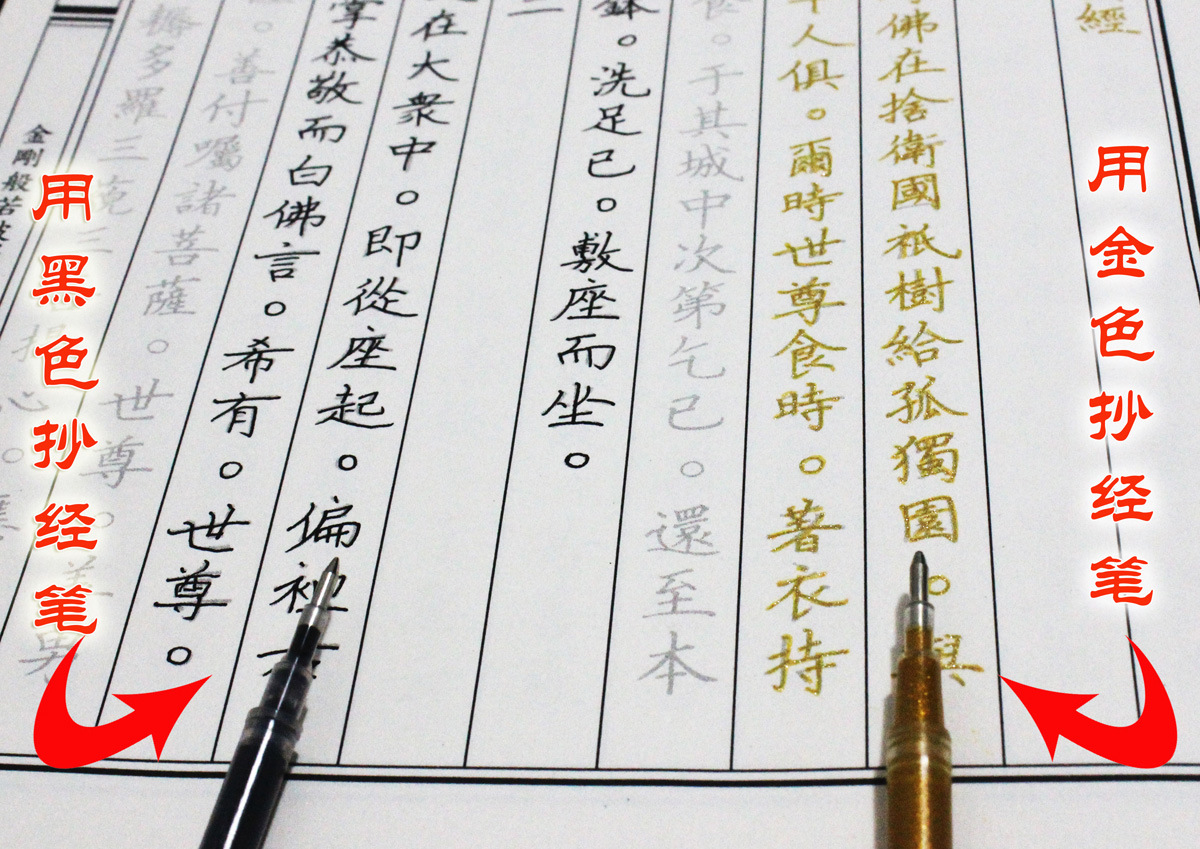 經
佛在捨衛國祇樹給孤獨園。與
人俱。爾時世尊食時。著衣持
食。于其城中次第乞已。還至本
鉢。洗足已。敷座而坐。
二
在大衆中。即從座起。偏裡
掌恭敬而白佛言。希有。世尊。
。善付囑諸菩薩。世尊。善男
耨多羅三
心。
金剛般若波
用金色抄经笔
用黑色抄经笔